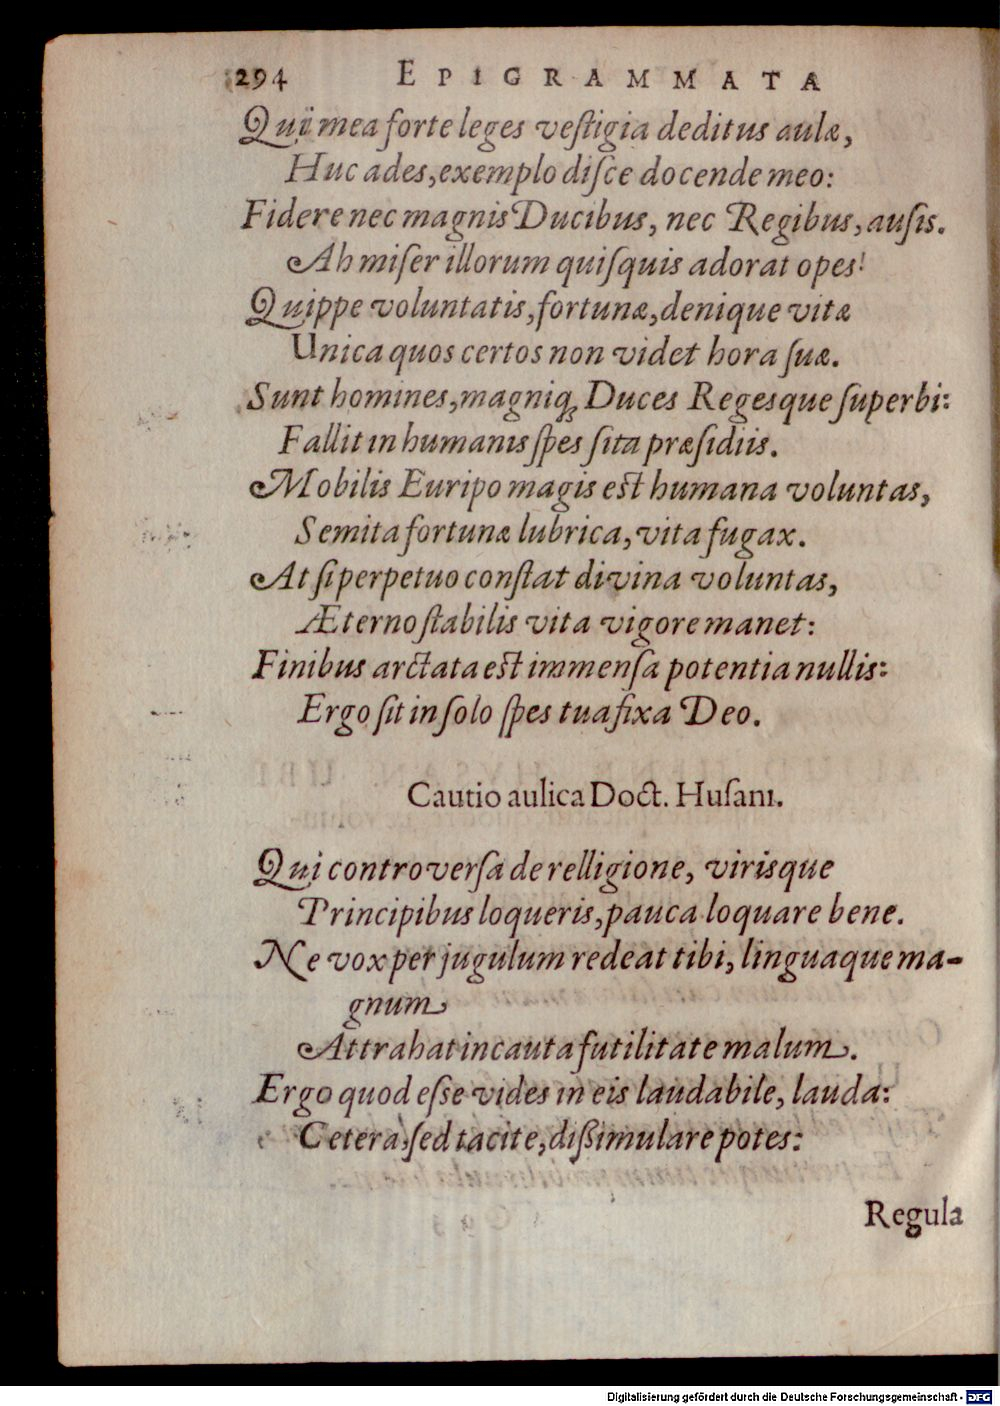 294 EPIGRAMMATA
Qui mea forte leges veſtigia deditus aulæ,
Huc ades, exemplo diſce docende meo:
Fidere nec magnis Ducibus, nec Regibus, auſis.
Ah miſer illorum quiſquis adorat opes!
Quippe voluntatis, fortunæ, denique vitæ
Unica quos certos non videt hora ſuæ.
Sunt homines, magniq; Duces Regesque ſuperbi:
Fallit in humanis ſpes ſita præſidiis.
Mobilis Euripo magis eſt humana voluntas,
Semita fortunæ lubrica, vita fugax.
At ſi perpetuo conſtat divina voluntas,
Æterno ſtabilis vita vigore manet:
Finibus arctata eſt immenſa potentia nullis:
Ergo ſit in ſolo ſpes tua fixa Deo.
Cautio aulica Doct. Huſani.
Qui controverſa de relligione, virisque
Principibus loqueris, pauca loquare bene.
Ne vox per jugulum redeat tibi, linguaque ma-
gnum
Attrahat incauta futilitate malum.
Ergo quod eſſe vides in eis laudabile, lauda:
Cetera, ſed tacite, diſſimulare potes:
Regula
Digitalisierung gefördert durch die Deutsche Forschungsgemeinschaft - DFG